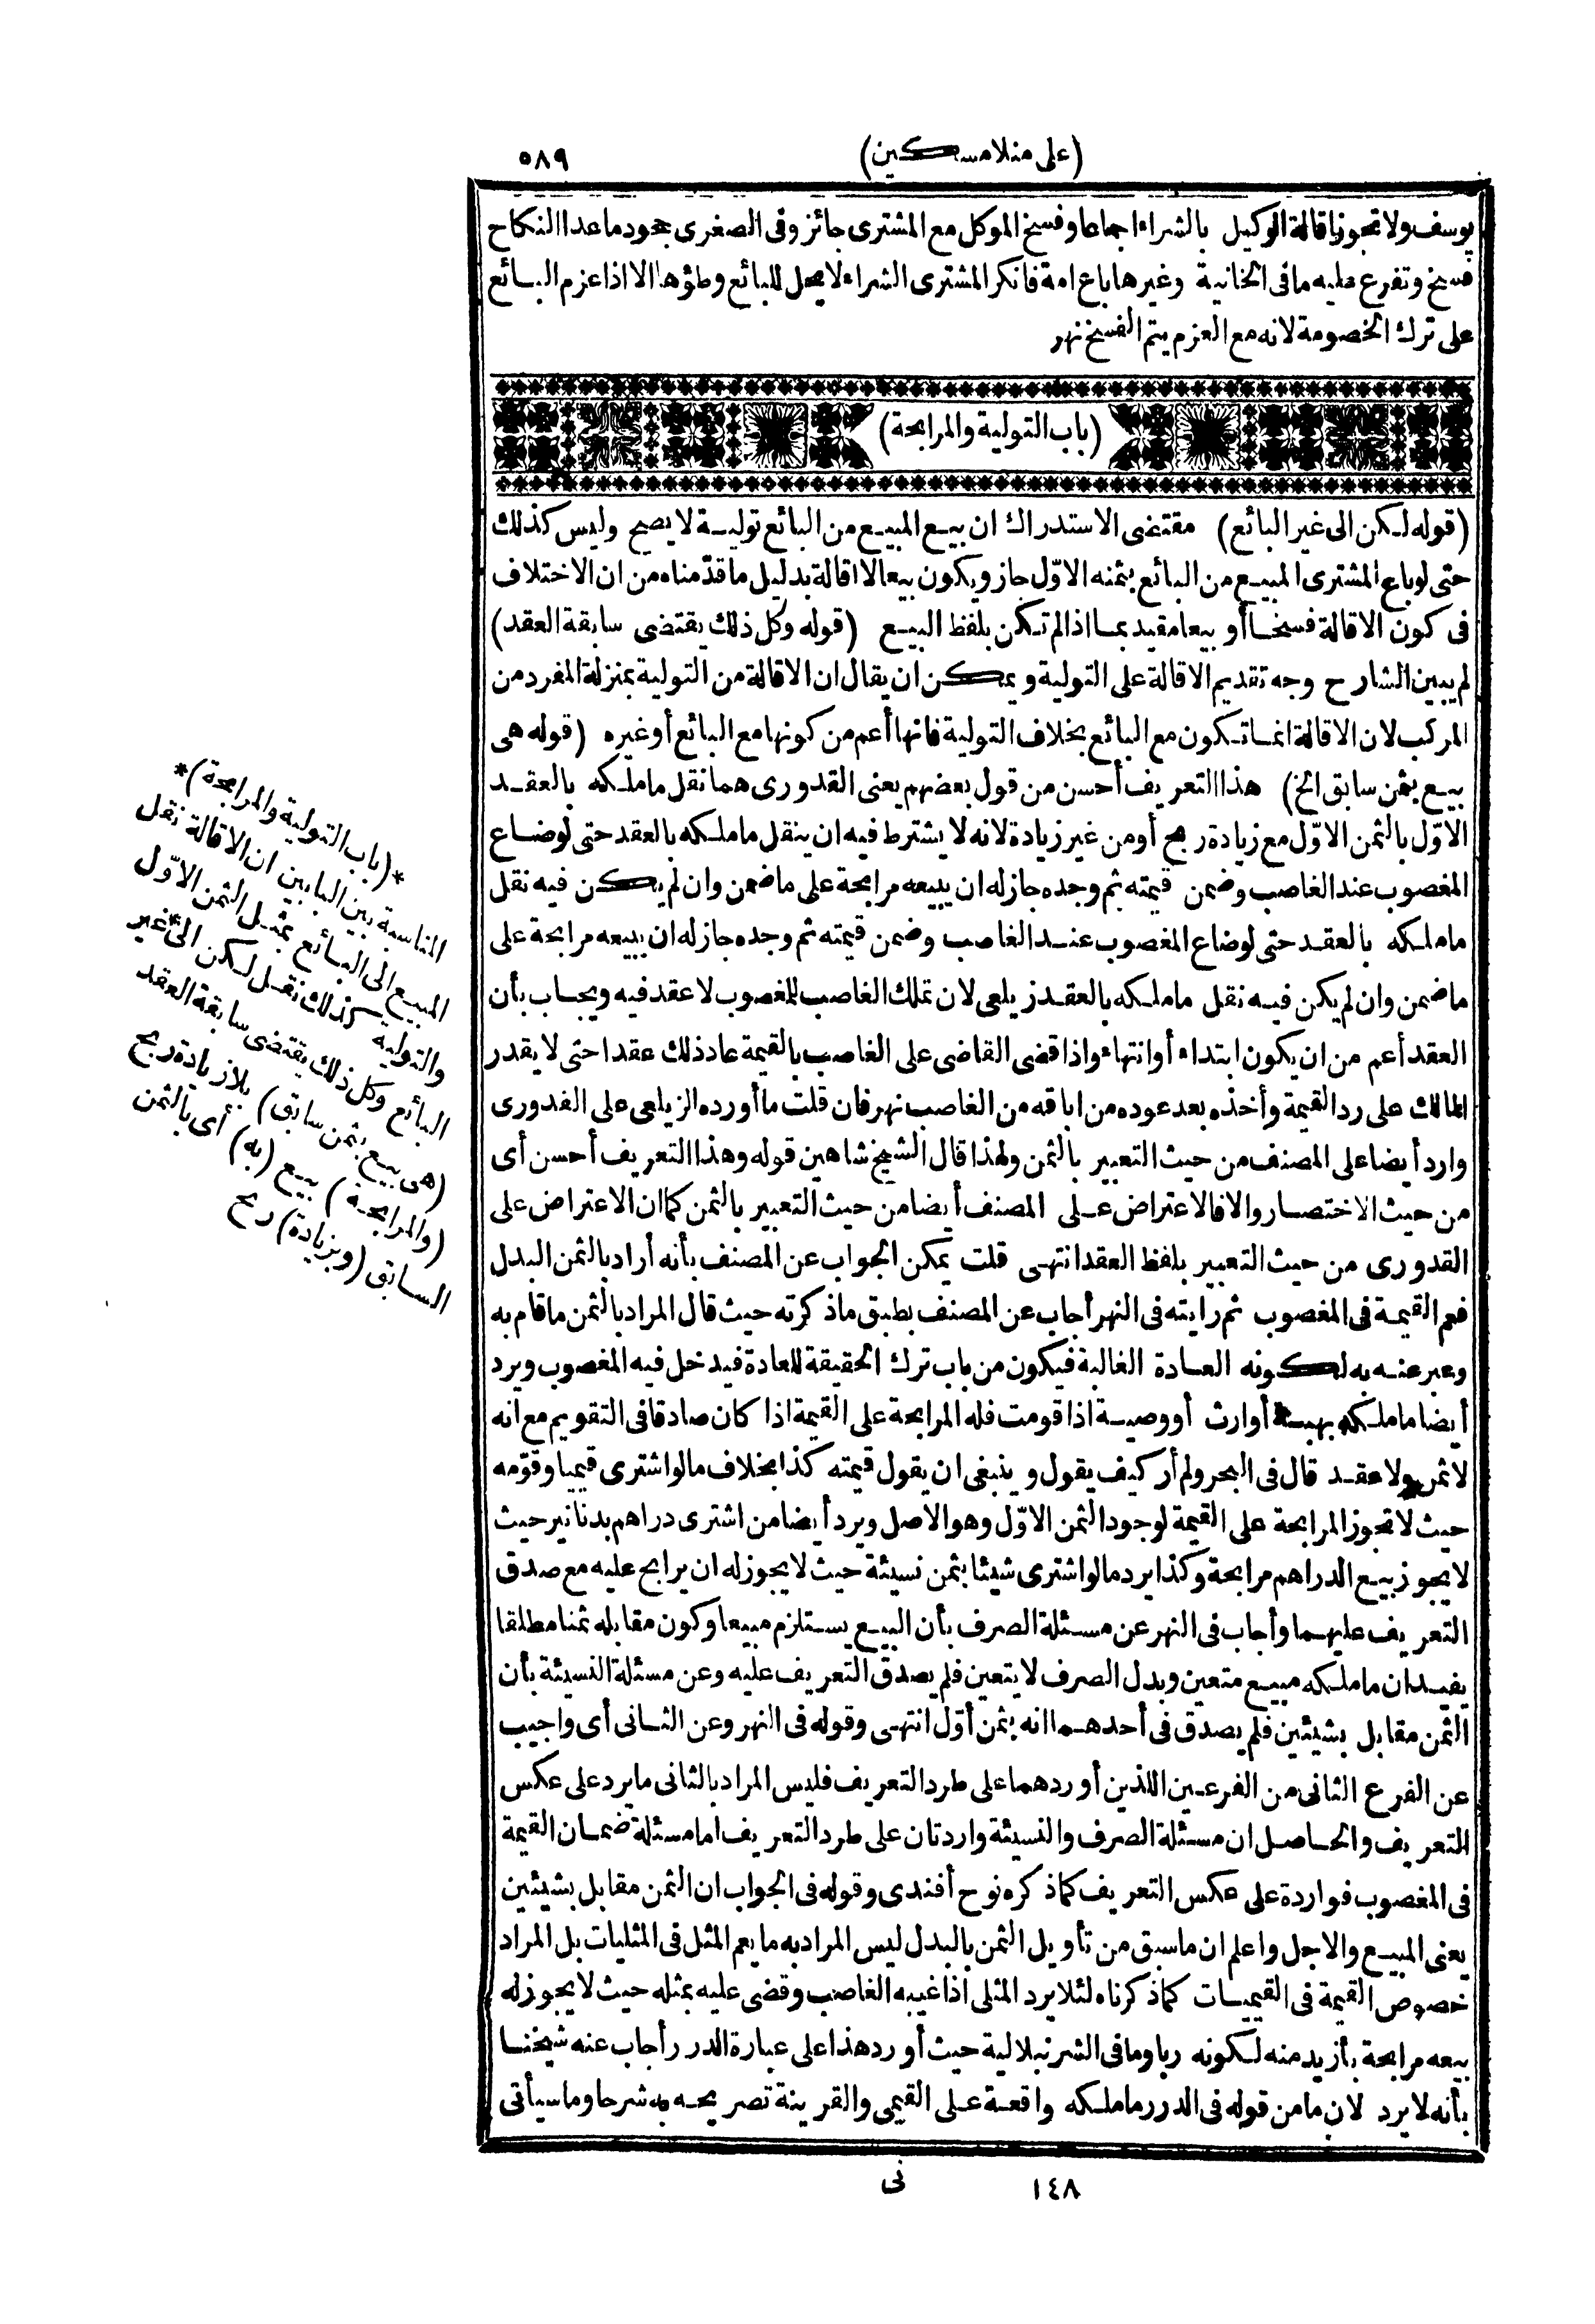 (على منلا مسكين)
٥٨٩
يوسف ولا تجوز اقالة الوكيل بالشراء اجماعا وفسخ الموكل مع المشترى جائز وفى الصغرى جحود ما عدا النكاح
فسخ وتفرع عليه ما فى الخانية وغيرها باع امة فانكر المشترى الشراء لا يحل للبائع وطؤها الا اذا عزم البائع
على ترك الخصومة لانه مع العزم يتم الفسخ نهر
(باب التولية والمرابحة)
(قوله لكن الى غير البائع) مقتضى الاستدراك ان بيع المبيع من البائع تولية لا يصح وليس كذلك
حتى لو باع المشترى المبيع من البائع بثمنه الاوّل جاز ويكون بيعا لا اقالة بدليل ما قدّمناه من ان الاختلاف
فى كون الاقالة فسخا أو بيعا مقيد بما اذا لم تكن بلفظ البيع (قوله وكل ذلك يقتضى سابقة العقد)
لم يبين الشارح وجه تقديم الاقالة على التولية ويمكن ان يقال ان الاقالة من التولية بمنزلة المفرد من
المركب لان الاقالة انما تكون مع البائع بخلاف التولية فانها أعم من كونها مع البائع أو غيره (قوله هى
بيع بثمن سابق الخ) هذا التعريف أحسن من قول بعضهم يعنى القدورى هما نقل ما ملكه بالعقد
الاوّل بالثمن الاوّل مع زيادة ربح أو من غير زيادة لانه لا يشترط فيه ان ينقل ما ملكه بالعقد حتى لو ضاع
المغصوب عند الغاصب وضمن قيمته ثم وجده جاز له ان يبيعه مرابحة على ما ضمن وان لم يكن فيه نقل
ما ملكه بالعقد حتى لو ضاع المغصوب عند الغاصب وضمن قيمته ثم وجده جاز له ان يبيعه مرابحة على
ما ضمن وان لم يكن فيه نقل ما ملكه بالعقد زيلعى لان تملك الغاصب للمغصوب لا عقد فيه ويجاب بأن
العقد أعم من ان يكون ابتداء أو انتهاء واذا قضى القاضى على الغاصب بالقيمة عاد ذلك عقدا حتى لا يقدر
المالك على رد القيمة وأخذه بعد عوده من اباقه من الغاصب نهر فان قلت ما أورده الزيلعى على القدورى
وارد أيضا على المصنف من حيث التعبير بالثمن ولهذا قال الشيخ شاهين قوله وهذا التعريف أحسن أى
من حيث الاختصار والا فالاعتراض على المصنف أيضا من حيث التعبير بالثمن كما ان الاعتراض على
القدورى من حيث التعبير بلفظ العقد انتهى قلت يمكن الجواب عن المصنف بأنه أراد بالثمن البدل
فعم القيمة فى المغصوب ثم رايته فى النهر أجاب عن المصنف بطبق ما ذكرته حيث قال المراد بالثمن ما قام به
وعبر عنه به لكونه العادة الغالبة فيكون من باب ترك الحقيقة للعادة فيدخل فيه المغصوب ويرد
أيضا ما ملكه بهبة أو ارث أو وصية اذا قومت فله المرابحة على القيمة اذا كان صادقا فى التقويم مع انه
لا ثمن ولا عقد قال فى البحر ولم أر كيف يقول وينبغى ان يقول قيمته كذا بخلاف ما لو اشترى قيميا وقوّمه
حيث لا تجوز المرابحة على القيمة لوجود الثمن الاوّل وهو الاصل ويرد أيضا من اشترى دراهم بدنانير حيث
لا يجوز بيع الدراهم مرابحة وكذا يرد ما لو اشترى شيئا بثمن نسيئة حيث لا يجوز له ان يرابح عليه مع صدق
التعريف عليهما وأجاب فى النهر عن مسئلة الصرف بأن البيع يستلزم مبيعا وكون مقابله ثمنا مطلقا
يفيد ان ما ملكه مبيع متعين وبدل الصرف لا يتعين فلم يصدق التعريف عليه وعن مسئلة النسيئة بأن
الثمن مقابل بشيئين فلم يصدق فى أحدهما انه بثمن أوّل انتهى وقوله فى النهر وعن الثانى أى واجيب
عن الفرع الثانى من الفرعين اللذين أوردهما على طرد التعريف فليس المراد بالثانى ما يرد على عكس
التعريف والحاصل ان مسئلة الصرف والنسيئة واردتان على طرد التعريف اما مسئلة ضمان القيمة
فى المغصوب فواردة على عكس التعريف كما ذكره نوح أفندى وقوله فى الجواب ان الثمن مقابل بشيئين
يعنى المبيع والاجل واعلم ان ما سبق من تأويل الثمن بالبدل ليس المراد به ما يعم المثل فى المثليات بل المراد
خصوص القيمة فى القيميات كما ذكرناه لئلا يرد المثلى اذا غيبه الغاصب وقضى عليه بمثله حيث لا يجوز له
بيعه مرابحة بأزيد منه لكونه ربا وما فى الشرنبلالية حيث أورد هذا على عبارة الدرر أجاب عنه شيخنا
بأنه لا يرد لان ما من قوله فى الدرر ما ملكه واقعة على القيمى والقرينة تصريحه به شرحا وما سيأتى
*(باب التولية والمرابحة)*
المناسبة بين البابين ان الاقالة نقل
المبيع الى البائع بمثل الثمن الاوّل
والتولية كذلك نقل لكن الى غير
البائع وكل ذلك يقتضى سابقة العقد
(هى بيع بثمن سابق) بلا زيادة ربح
(والمرابحة) بيع (به) أى بالثمن
السابق (وبزيادة) ربح
١٤٨
نى